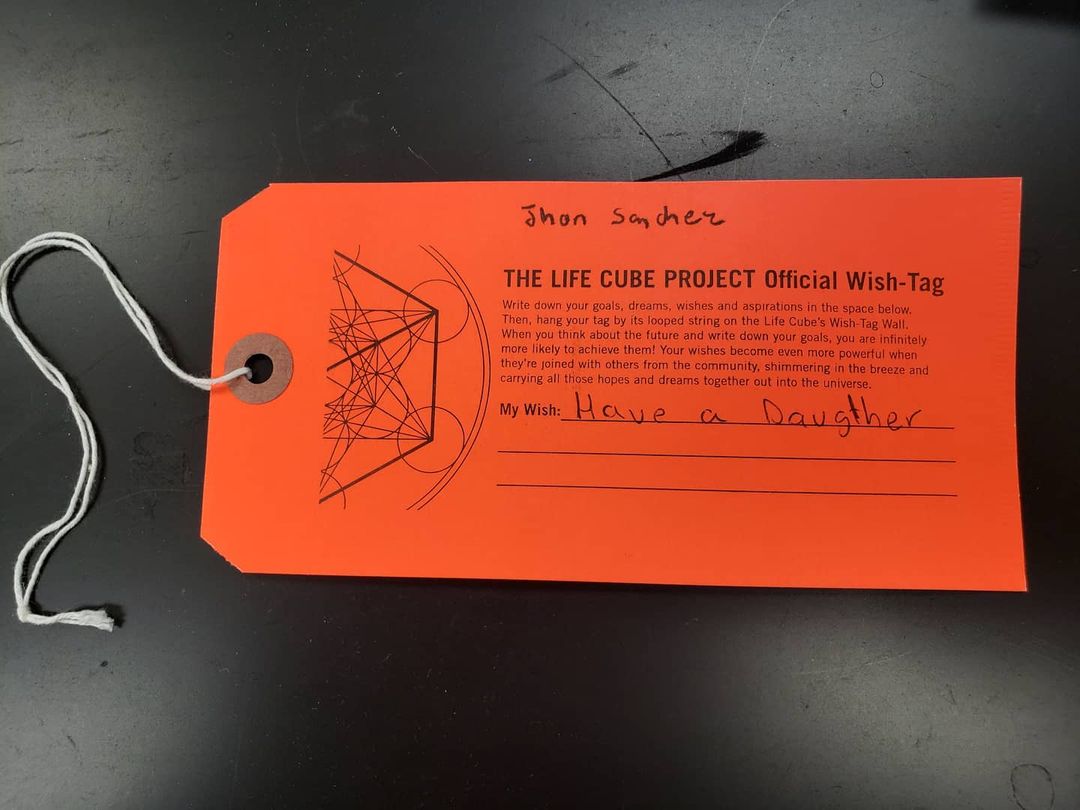 Jhon Sanchez
THE LIFE CUBE PROJECT Official Wish-Tag
Write down your goals, dreams, wishes and aspirations in the space below.
Then, hang your tag by its looped string on the Life Cube's Wish-Tag Wall.
When you think about the future and write down your goals, you are infinitely
more likely to achieve them! Your wishes become even more powerful when
they're joined with others from the community, shimmering in the breeze and
carrying all those hopes and dreams together out into the universe.
My Wish: Have a Daugther